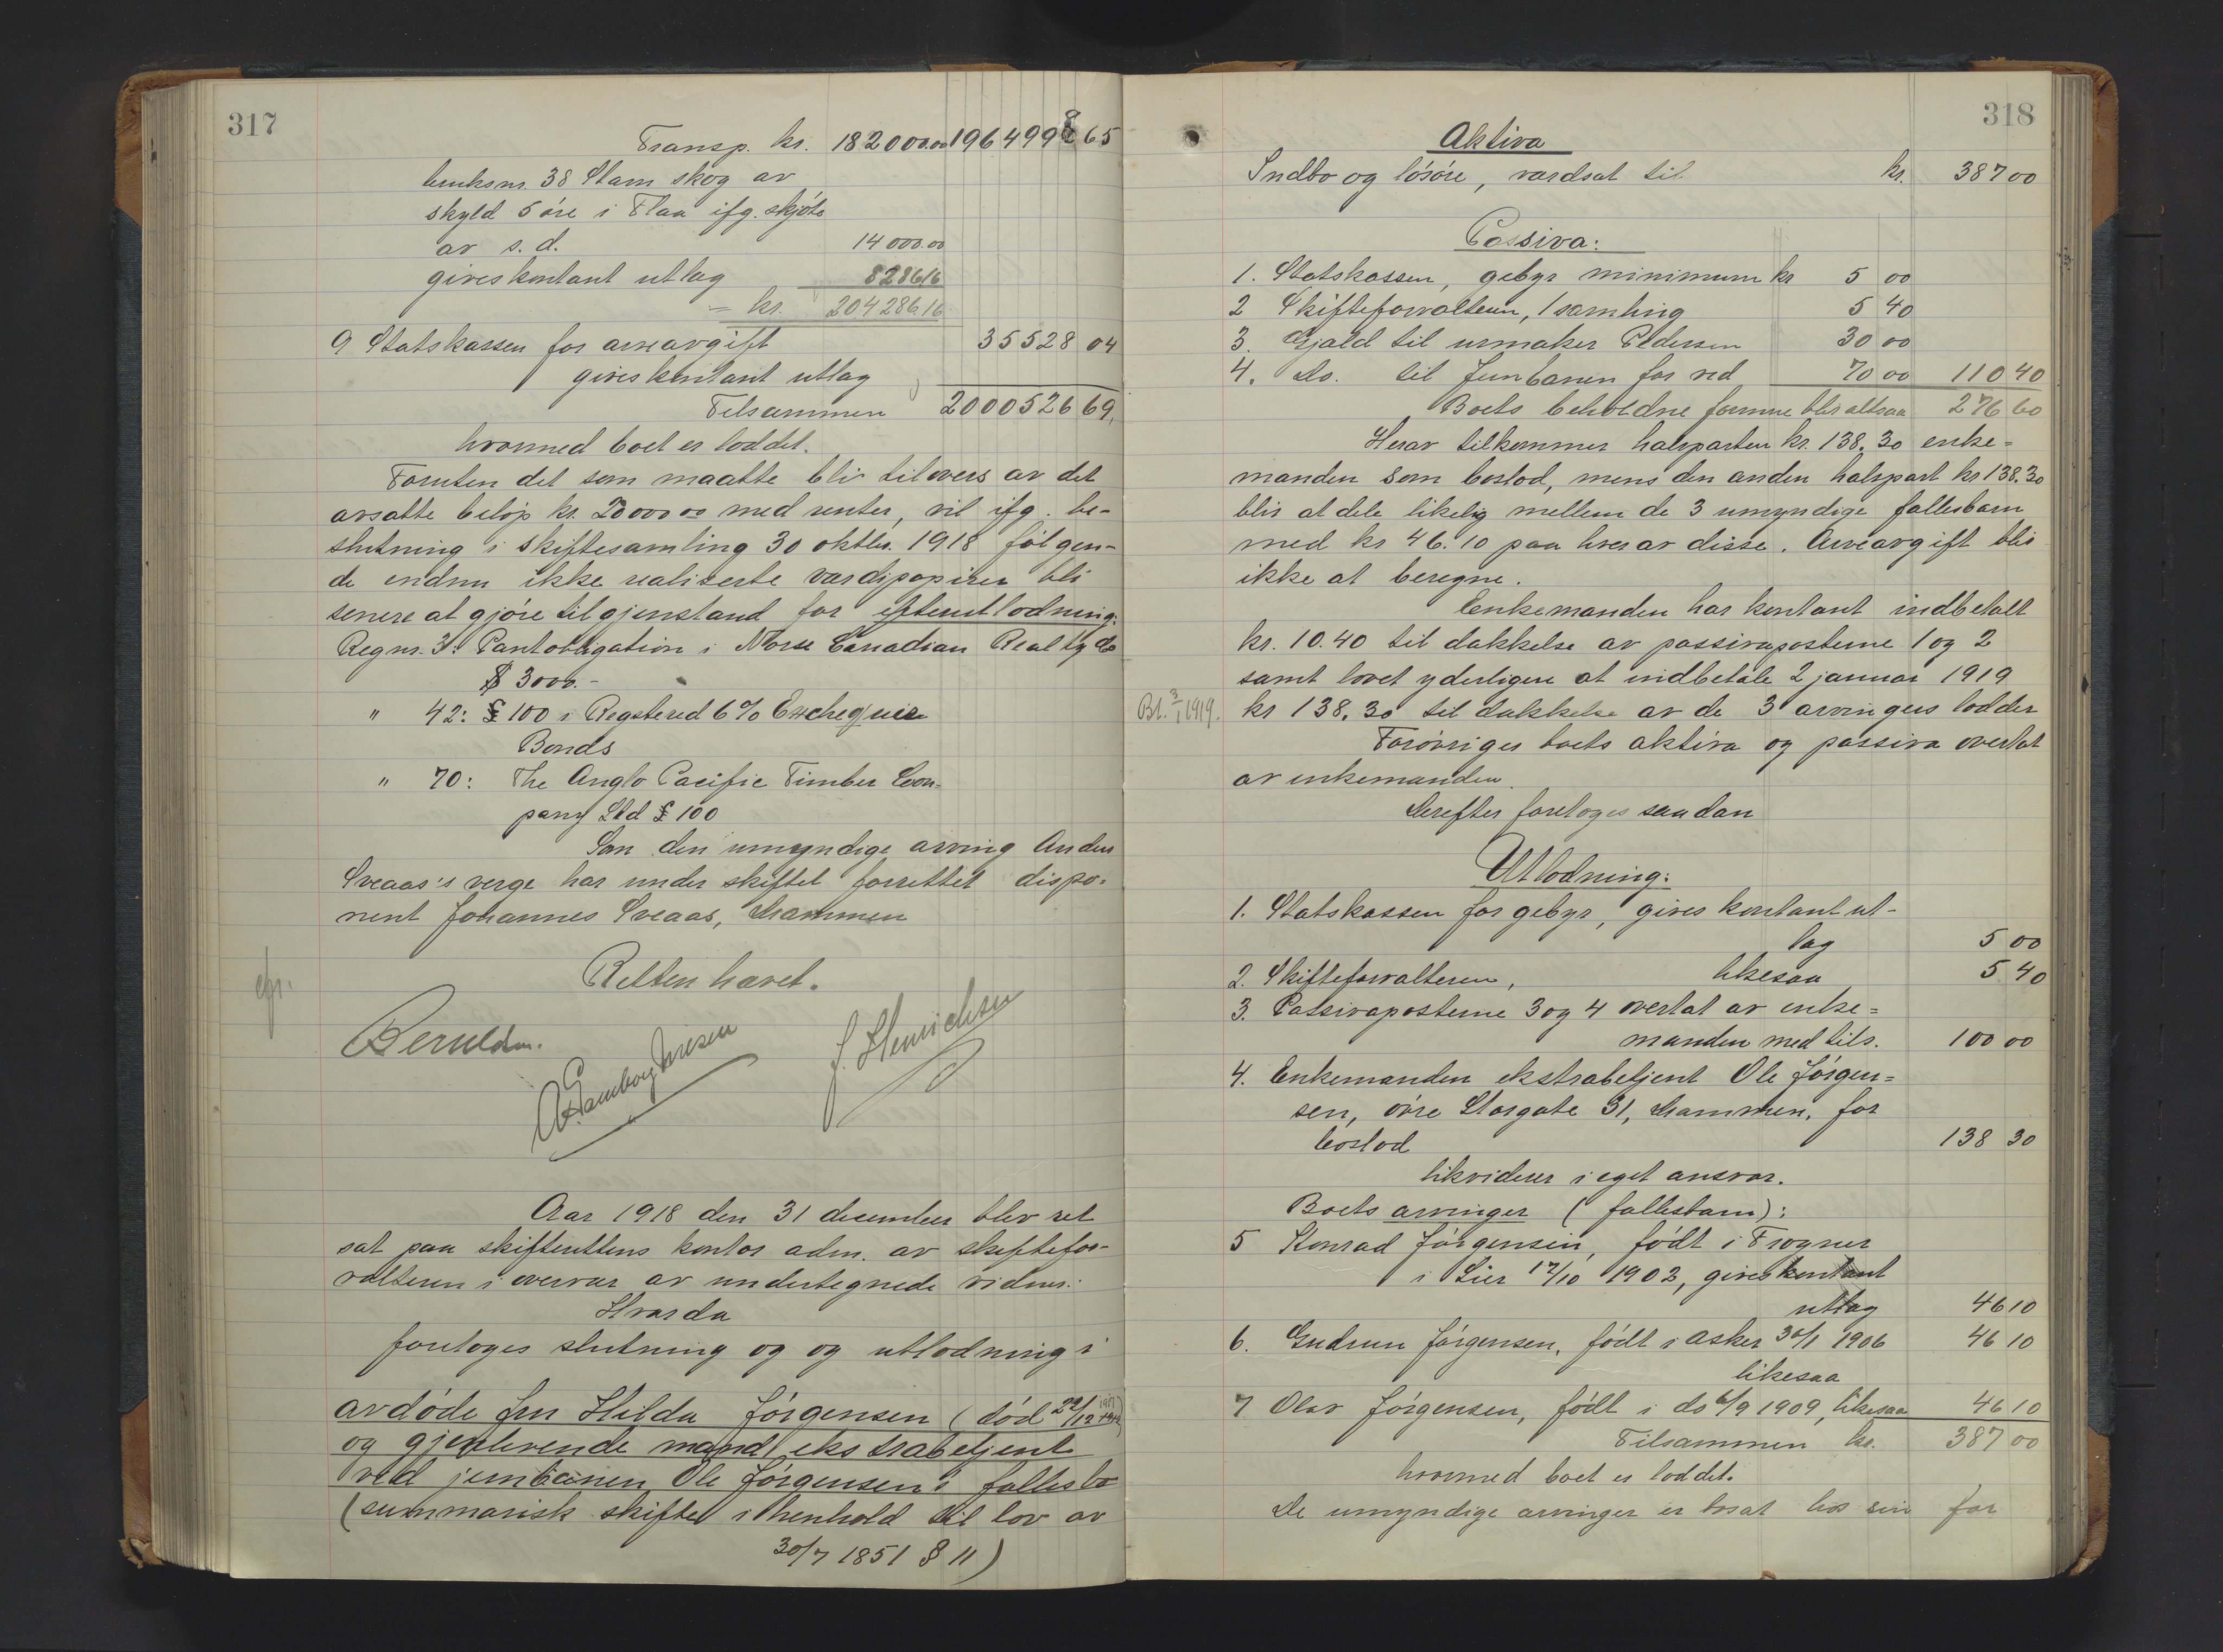 317
Transp. kr. 182000.00 1964998 65
bruksnr. 38 Stam skog av
skyld 5 øre i Flaa ifg. skjøte
av s. d. 14000.00
gives kontant utlag 8286.16
= kr. 204286.16
9 Statskassen for arveavgift 35528 04
gives kontant utlag
Tilsammen 2000526 69.
hvormed boet er loddet.
Foruten det som maatte bli tilovers av det
avsatte beløp kr. 20000.00 med renter, vil ifg. be-
slutning i skiftesamling 30 oktbr. 1918 følgen-
de endnu ikke realiserte værdipapirer bli
senere at gjøre til gjenstand for efterutlodning:
Regnr. 3: Pantobligation i Norse Canadian Realty Co
$ 3000.-
" 42: £ 100 i Registered 6% Exchequer
Bonds
" 70: The Anglo Pacific Timber Com-
pany Ltd £ 100
Som den umyndige arving Anders
Sveaas's verge har under skiftet forrettet dispo-
nent Johannes Sveaas, Drammen
Retten hævet.
J. Henrichsen
Aar 1918 den 31 december blev ret
sat paa skifterettens kontor adm. av skiftefor-
valteren i overvær av undertegnede vidner:
Hvorda
foretoges slutning og og utlodning i
avdøde fru Hilda Jørgensen (død 22/12 1917)
og gjenlevende mand ekstrabetjent
ved jernbanen Ole Jørgensens fællesbo
(summarisk skifte i henhold til lov av
30/7 1851 § 11)
318
Aktiva
Indbo og løsøre, værdsat til kr. 387 00
Passiva:
1. Statskassen, gebyr minimum kr 5 00
2 Skifteforvalteren, 1 samling 5 40
3. Gjæld til urmaker Pedersen 30 00
4. do. til Jernbanen for ved 70 00 110 40
Boets beholdne formue blir altsaa 276 60
Herav tilkommer halvparten kr. 138.30 enke=
manden som boslod, mens den anden halvpart kr 138.30
blir at dele likelig mellem de 3 umyndige fællesbarn
med kr 46.10 paa hver av disse. Arveavgift blir
ikke at beregne.
Enkemanden har kontant indbetalt
kr. 10.40 til dækkelse av passivaposterne 1 og 2
samt lovet yderligere at indbetale 2 januar 1919
Bt. 3/1 1919. kr 138.30 til dækkelse av de 3 arvingers lodder
Forøvrig er boets aktiva og passiva overtat
av enkemanden.
Derefter foretoges saadan
Utlodning:
1. Statskassen for gebyr, gives kontant ut-
lag 5 00
2. Skifteforvalteren, likesaa 5 40
3. Passivaposterne 3 og 4 overtat av enke=
manden med tils. 100 00
4. Enkemanden ekstrabetjent Ole Jørgen=
sen, øvre Storgate 31, Drammen, for
boslod 138 30
likviderer i eget ansvar.
Boets arvinger (fællesbarn):
5 Konrad Jørgensen, født i Frogner
i Lier 17/10 1902, gives kontant
utlag 46 10
6. Gudrun Jørgensen, født i Asker 30/1 1906 46 10
likesaa
7 Olav Jørgensen, født i do 6/9 1909, likesaa 46 10
Tilsammen kr. 387 00
hvormed boet er loddet.
De umyndige arvinger er bosat hos sin far